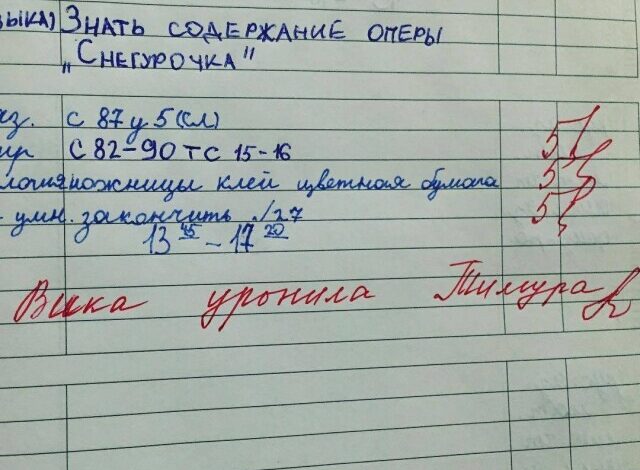 зыка) Знать содержание оперы
„Снегурочка"
аз. с 87 у 5 (сл)
ир с 82-90 т с 15-16 5
логия ножницы клей цветная бумага 5
умн. закончить 5
13 45 - 17 20
Вика уронила Тимура